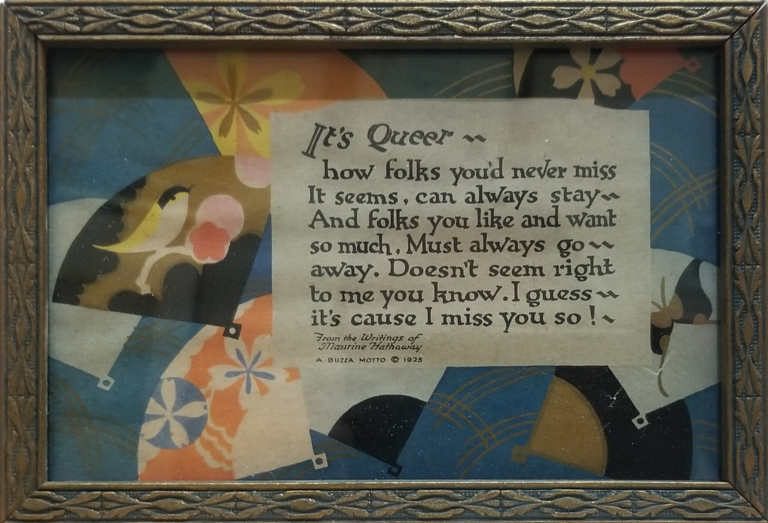 It's Queer ~~
how folks you'd never miss
It seems, can always stay~~
And folks you like and want
so much, Must always go ~~
away. Doesn't seem right
to me you know. I guess ~~
it's cause I miss you so! ~
From the Writings of
Maurine Hathaway
A BUZZA MOTTO © 1925